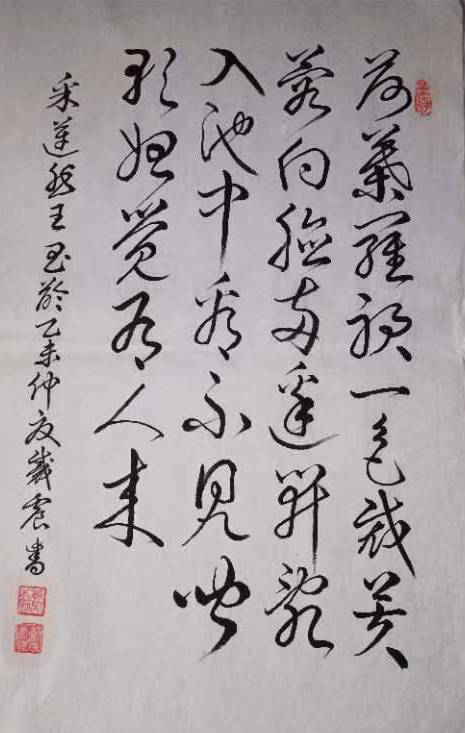 荷葉羅裙一色裁芙
蓉向臉兩邊開亂
入池中看不見聞
歌始覺有人来
采蓮 王昌齡乙未仲夏 震書